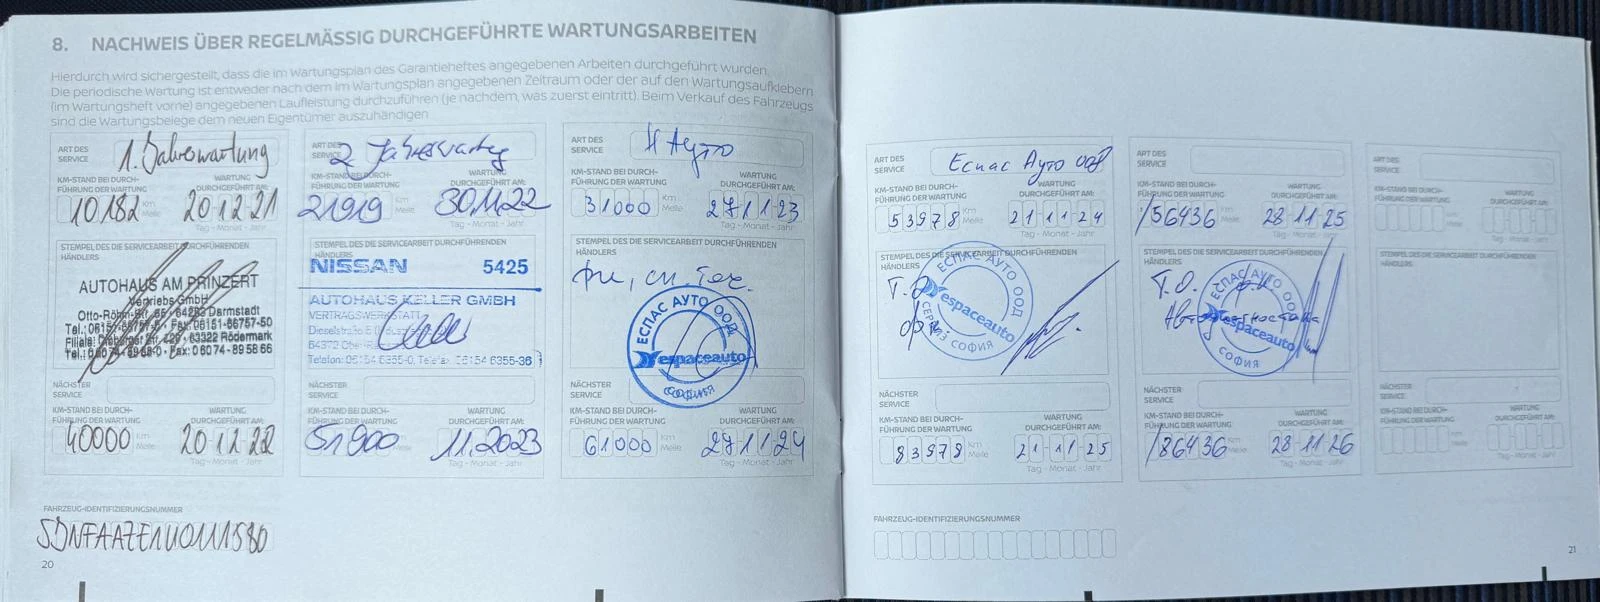 8. NACHWEIS ÜBER REGELMÄSSIG DURCHGEFÜHRTE WARTUNGSARBEITEN
Hierdurch wird sichergestellt, dass die im Wartungsplan des Garantieheftes angegebenen Arbeiten durchgeführt wurden.
Die periodische Wartung ist entweder nach dem im Wartungsplan angegebenen Zeitraum oder der auf den Wartungsaufklebern
(im Wartungsheft vorne) angegebenen Laufleistung durchzuführen (je nachdem, was zuerst eintritt). Beim Verkauf des Fahrzeugs
sind die Wartungsbelege dem neuen Eigentümer auszuhändigen
ART DES SERVICE 1. Jahreswartung
KM-STAND BEI DURCH-FÜHRUNG DER WARTUNG
WARTUNG DURCHGEFÜHRT AM:
10182 Km Meile 20 12 21
Tag - Monat - Jahr
STEMPEL DES DIE SERVICEARBEIT DURCHFÜHRENDEN
HÄNDLERS
AUTOHAUS AM PRINZERT
Vertriebs GmbH
Otto-Röhm-Str. 64293 Darmstadt
Fax: 06151-66757-50
63322 Rödermark
Fax: 06074-89 58 66
NÄCHSTER SERVICE
KM-STAND BEI DURCH-FÜHRUNG DER WARTUNG
WARTUNG DURCHGEFÜHRT AM:
40000 Km Meile 20 12 22
Tag - Monat - Jahr
ART DES SERVICE 2. Jahreswartung
KM-STAND BEI DURCH-FÜHRUNG DER WARTUNG
WARTUNG DURCHGEFÜHRT AM:
21919 Km Meile 30.11.22
Tag - Monat - Jahr
STEMPEL DES DIE SERVICEARBEIT DURCHFÜHRENDEN
HÄNDLERS
NISSAN 5425
AUTOHAUS KELLER GMBH
VERTRAGSWERKSTATT
Dieselstraße 5
64372
Telefon: 06154 6355-0, 06154 6355-36
NÄCHSTER SERVICE
KM-STAND BEI DURCH-FÜHRUNG DER WARTUNG
WARTUNG DURCHGEFÜHRT AM:
51900 Km Meile 11.2023
Tag - Monat - Jahr
ART DES SERVICE Н Ауто
KM-STAND BEI DURCH-FÜHRUNG DER WARTUNG
WARTUNG DURCHGEFÜHRT AM:
31000 Km Meile 27 11 23
Tag - Monat - Jahr
STEMPEL DES DIE SERVICEARBEIT DURCHFÜHRENDEN
HÄNDLERS
ЕСПАС АУТО ООД
espaceauto
СОФИЯ
NÄCHSTER SERVICE
KM-STAND BEI DURCH-FÜHRUNG DER WARTUNG
WARTUNG DURCHGEFÜHRT AM:
61000 Km Meile 27 11 24
Tag - Monat - Jahr
FAHRZEUG-IDENTIFIZIERUNGSNUMMER
20
ART DES SERVICE Еспас Ауто ООД
KM-STAND BEI DURCH-FÜHRUNG DER WARTUNG
WARTUNG DURCHGEFÜHRT AM:
53978 Km Meile 21 11 24
Tag - Monat - Jahr
STEMPEL DES DIE SERVICEARBEIT DURCHFÜHRENDEN
HÄNDLERS
Т.О.
ЕСПАС АУТО ООД
espaceauto
СЕРВИЗ СОФИЯ
NÄCHSTER SERVICE
KM-STAND BEI DURCH-FÜHRUNG DER WARTUNG
WARTUNG DURCHGEFÜHRT AM:
83978 Km Meile 21-11-25
Tag - Monat - Jahr
ART DES SERVICE
KM-STAND BEI DURCH-FÜHRUNG DER WARTUNG
WARTUNG DURCHGEFÜHRT AM:
56436 Km Meile 28 11 25
Tag - Monat - Jahr
STEMPEL DES DIE SERVICEARBEIT DURCHFÜHRENDEN
HÄNDLERS
Т.О.
ЕСПАС АУТО ООД
espaceauto
СОФИЯ
NÄCHSTER SERVICE
KM-STAND BEI DURCH-FÜHRUNG DER WARTUNG
WARTUNG DURCHGEFÜHRT AM:
86436 Km Meile 28 11 26
Tag - Monat - Jahr
ART DES SERVICE
KM-STAND BEI DURCH-FÜHRUNG DER WARTUNG
WARTUNG DURCHGEFÜHRT AM:
Km Meile
Tag - Monat - Jahr
STEMPEL DES DIE SERVICEARBEIT DURCHFÜHRENDEN
HÄNDLERS
NÄCHSTER SERVICE
KM-STAND BEI DURCH-FÜHRUNG DER WARTUNG
WARTUNG DURCHGEFÜHRT AM:
Km Meile
Tag - Monat - Jahr
FAHRZEUG-IDENTIFIZIERUNGSNUMMER
21